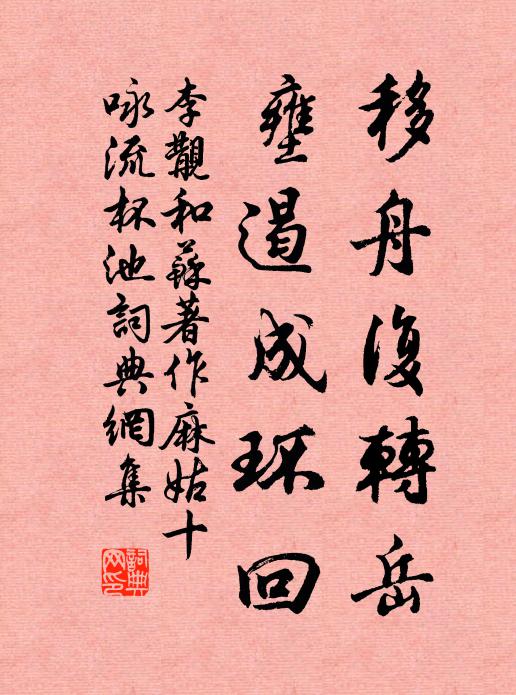 移舟復轉岳
壅遏成环回
李覯和蘇著作麻姑十
咏流杯池詞典網集
詞典網印